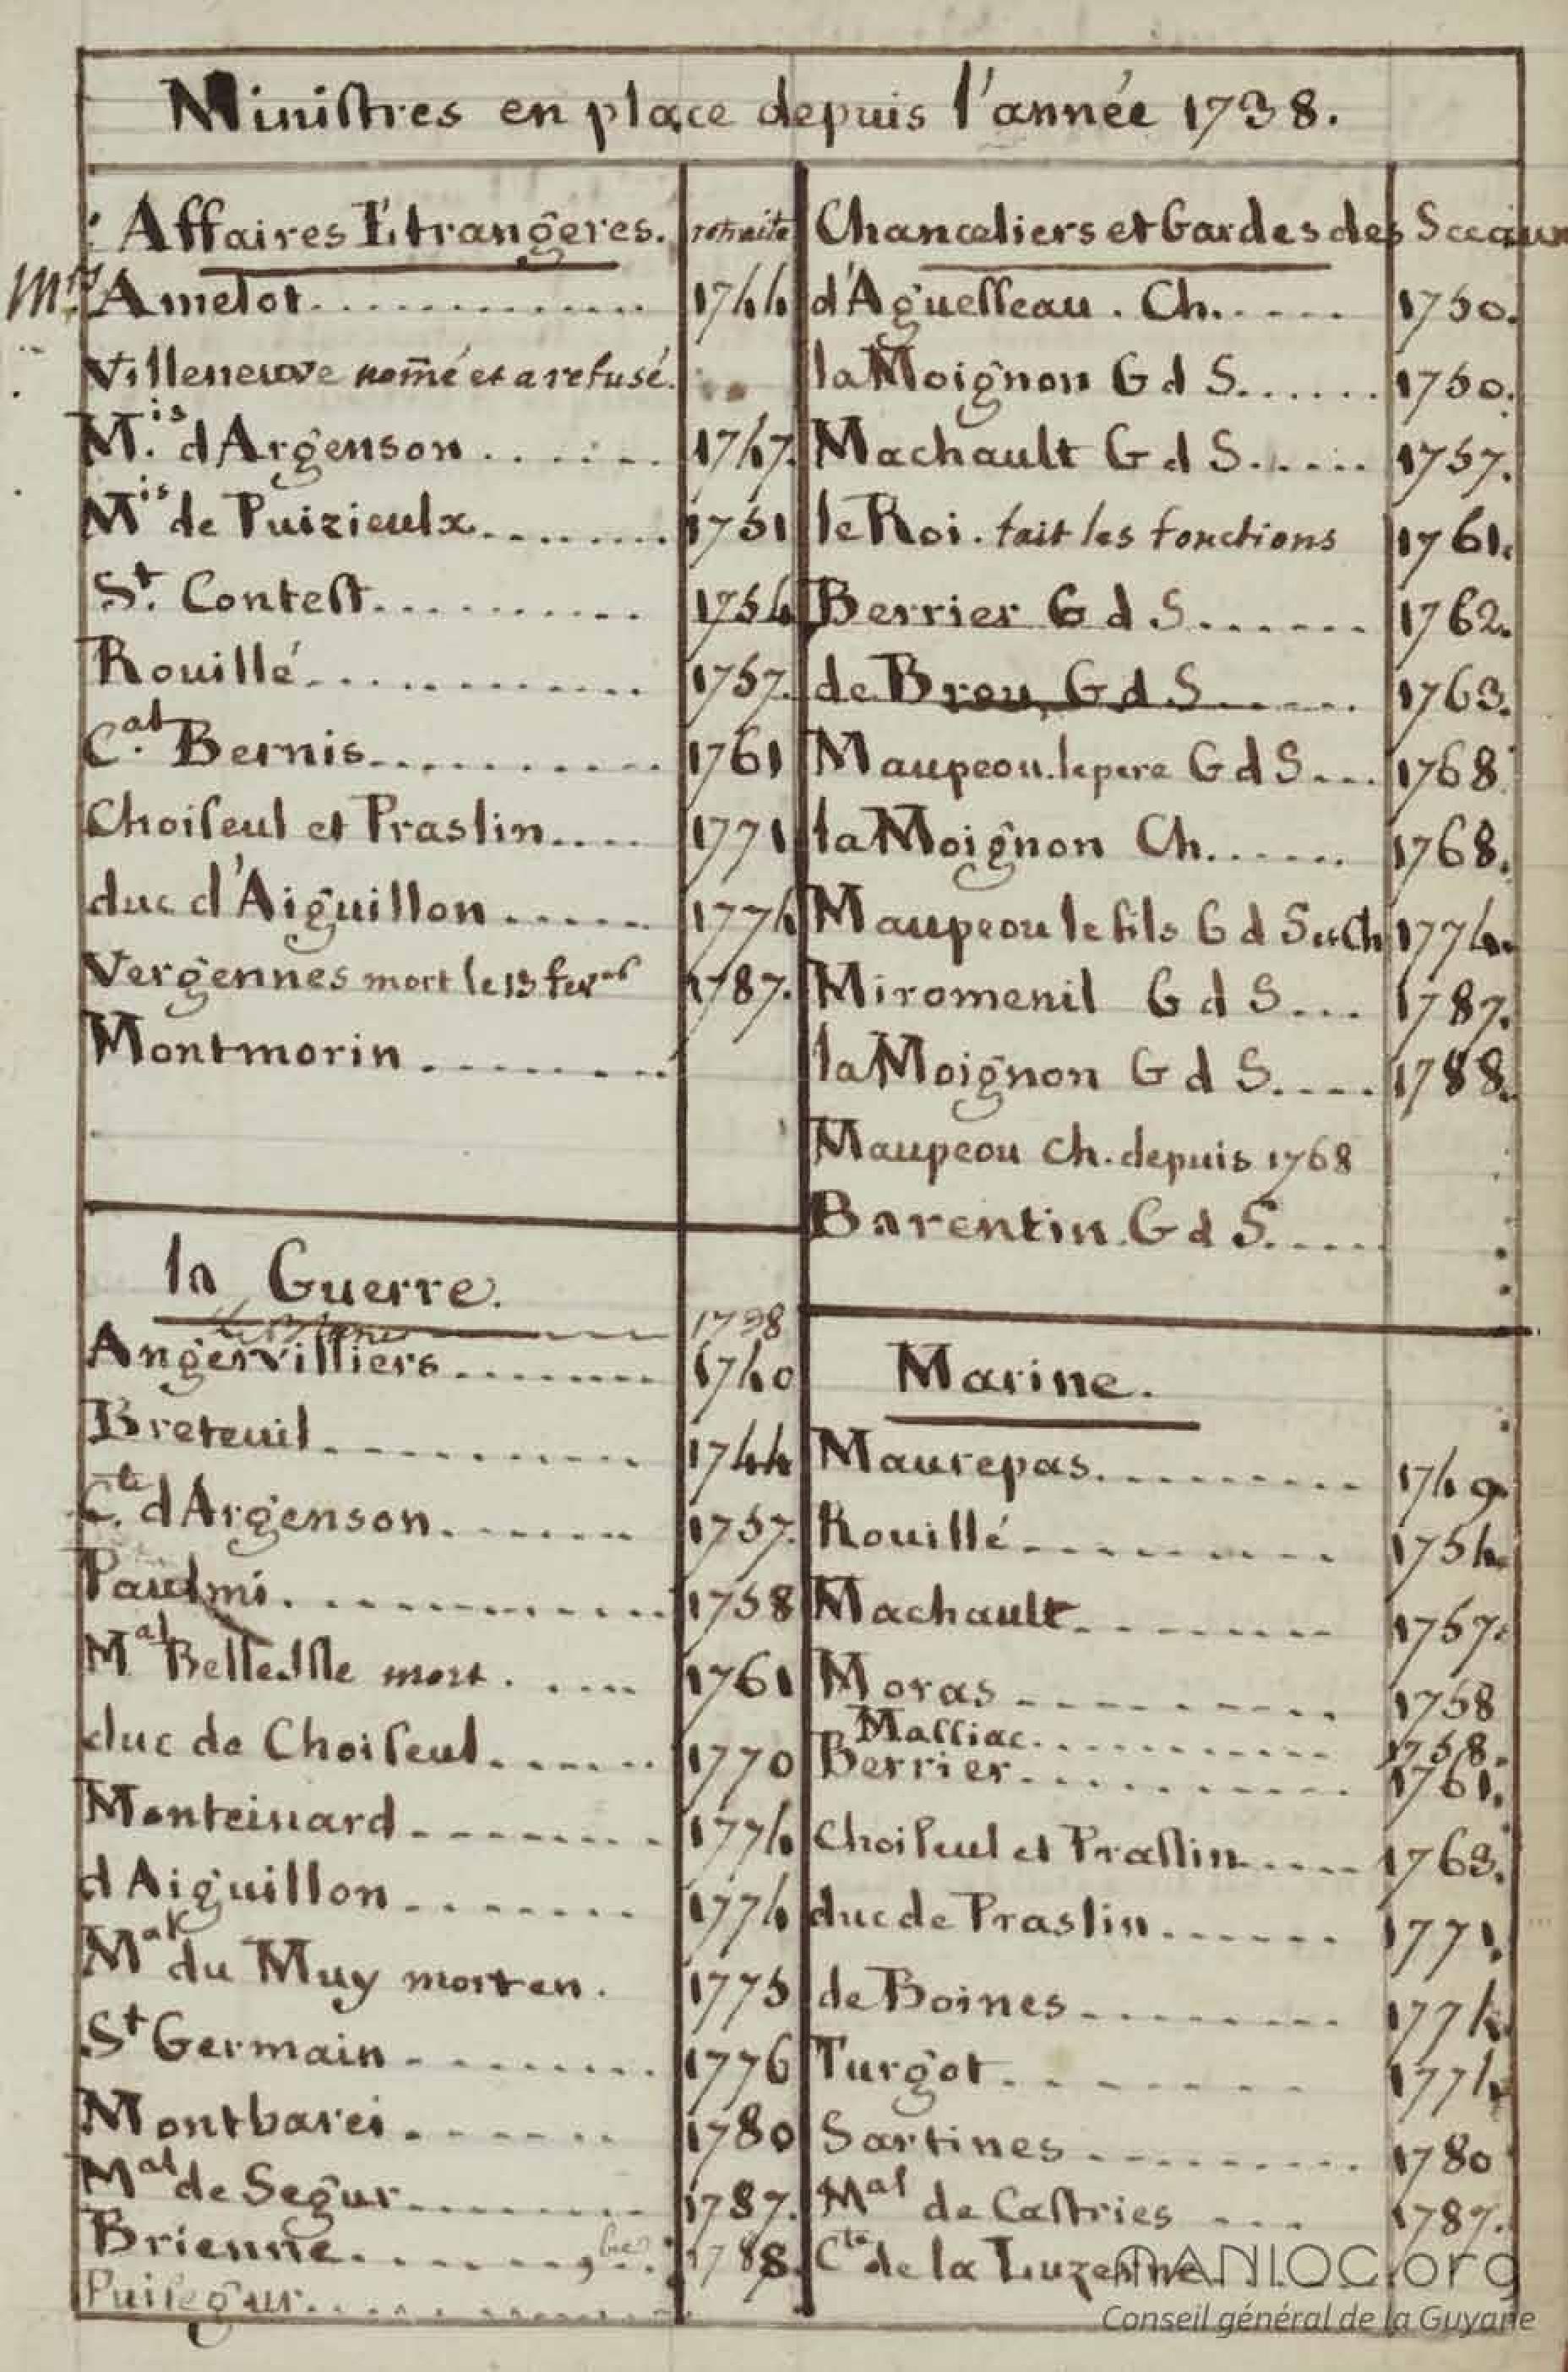 Ministres en place depuis l'année 1738.
Affaires Etrangeres. retraite
Mrs Amelot............ 1744
Villeneuve nom̃é et a refusé.
M.is d'Argenson....... 1747.
Mis de Puizieulx......... 1751
St. Contest........... 1754
Rouillé............. 1757.
C.al Bernis........... 1761
Choiseul et Praslin.... 1771
duc d'Aiguillon...... 1774
Vergennes mort le 13 fev 1787.
Montmorin.........
la Guerre.
1738
Angervilliers........ 1740
Breteuil.......... 1744
C.te d'Argenson....... 1757.
Paulmi............. 1758
Mal Belle Isle mort..... 1761
duc de Choiseul...... 1770
Monteinard......... 1774
d'Aiguillon........ 1774
Mal du Muy mort en. 1775
St Germain......... 1776
Montbarei....... 1780
Mal de Segur........ 1787.
Brienne........ 9bre. 1788.
Puisegur..............
Chanceliers et Gardes des Sceaux
d'Aguesseau. Ch..... 1750.
la Moignon G d S...... 1750.
Machault G d S...... 1757.
le Roi. fait les fonctions 1761.
Berrier G d S....... 1762.
de Brou, G d S...... 1763.
Maupeou. le pere G d S... 1768
la Moignon Ch....... 1768.
Maupeou le fils G d S et Ch 1774.
Miromenil G d S... 1787.
la Moignon G d S.... 1788.
Maupeou Ch. depuis 1768
Barentin. G d S.....
Marine.
Maurepas.......... 1749
Rouillé.......... 1754
Machault........ 1757.
Moras.......... 1758
Massiac........... 1758.
Berrier........... 1761.
Choiseul et Praslin.... 1763.
duc de Praslin...... 1771.
de Boines......... 1774.
Turgot........ 1774
Sartines.......... 1780
Mal de Castries ... 1787.
Cte de la Luzerne
MANIOC.org
Conseil général de la Guyane